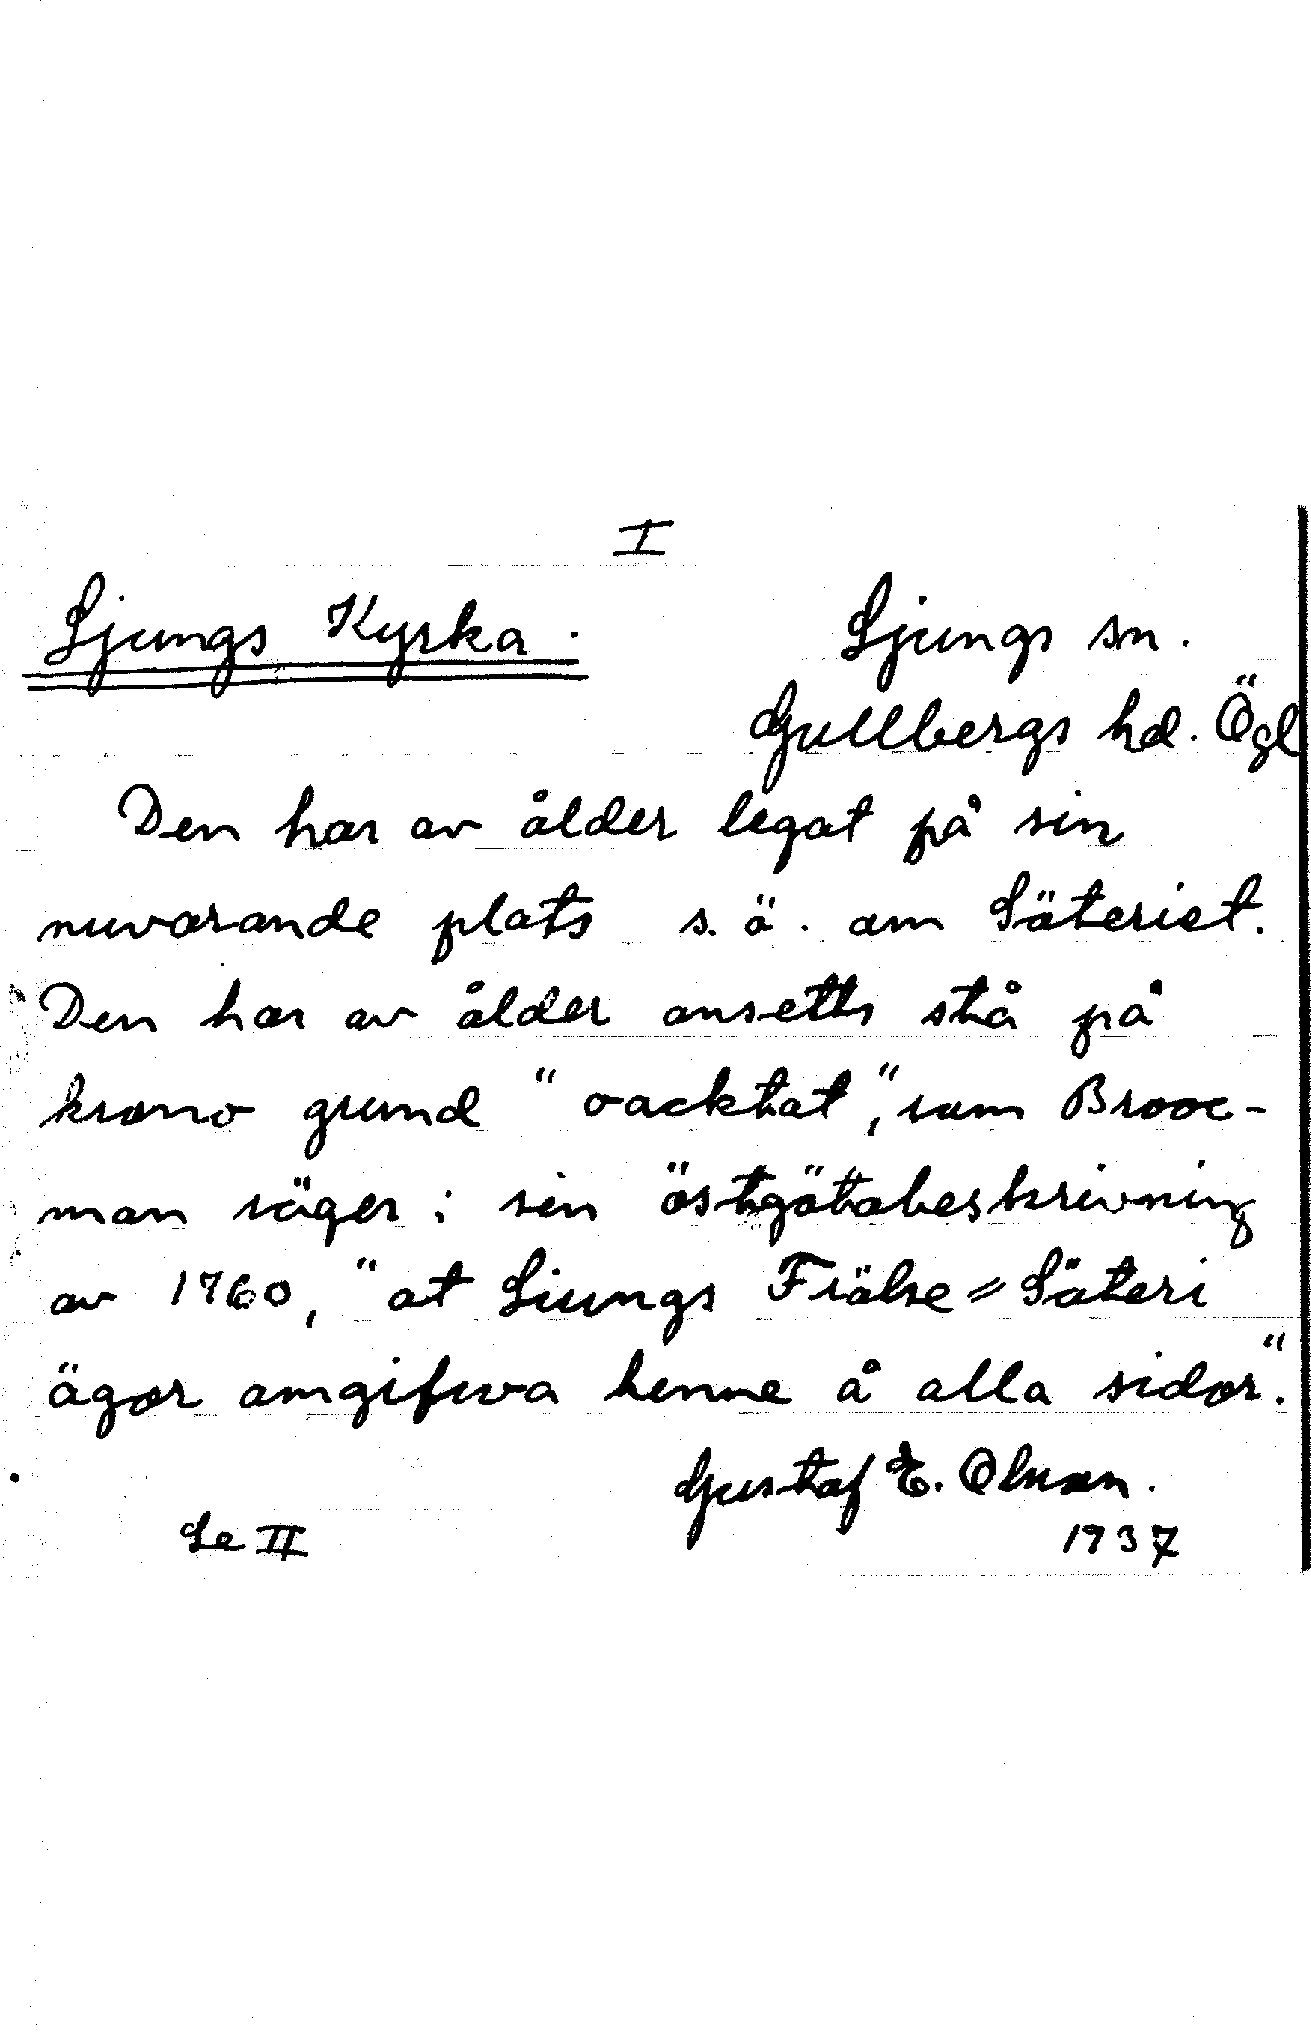 I
Ljungs Kyrka.
Ljungs sn.
Gullbergs hd. Ögl
Den har av ålder legat på sin
nuvarande plats s. ö. om Säteriet.
Den har av ålder ansetts stå på
krono grund "oacktat", som Brooc-
man säger i sin östgötabeskrivning
av 1760, "at Liungs Frälse=Säteri
ägor omgifwa henne å alla sidor".
Gustaf E. Olsson.
Se II
1937